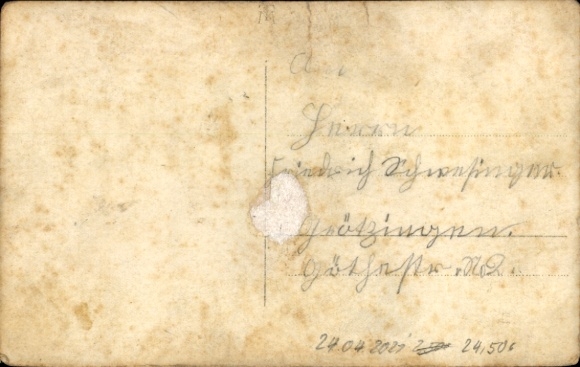 An
Herrn
Friedrich Schwesinger.
Grötzingen.
Göthestr. No 2.
24.04.2021 24,50€